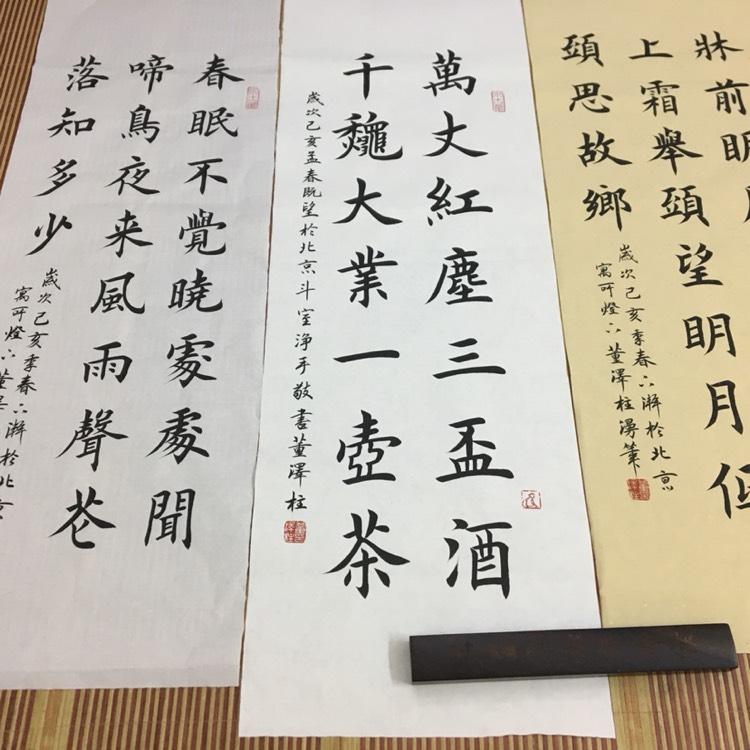 牀前明月
上霜舉頭望明月低
頭思故鄉
歲次己亥季春下澣於北京
寓所燈下董澤柱筆
萬丈紅塵三盃酒
千龝大業一壺茶
歲次己亥孟春既望於北京斗室淨手敬書董澤柱
春眠不覺曉處處聞
啼鳥夜来風雨聲花
落知多少
歲次己亥季春下澣於北京
寓所燈下董澤